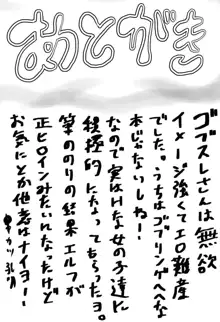 あとがき
ゴブスレさんは無欲
イメージ強くてエロ難産
でした。うちはゴブリンヘヘな
本じゃないしねー!
なので実はHな女の子達に
積極的になってもらったヨ。
筆ののりの結果エルフが
正ヒロインみたいんなったけど
お気にとか他意はナイヨー!